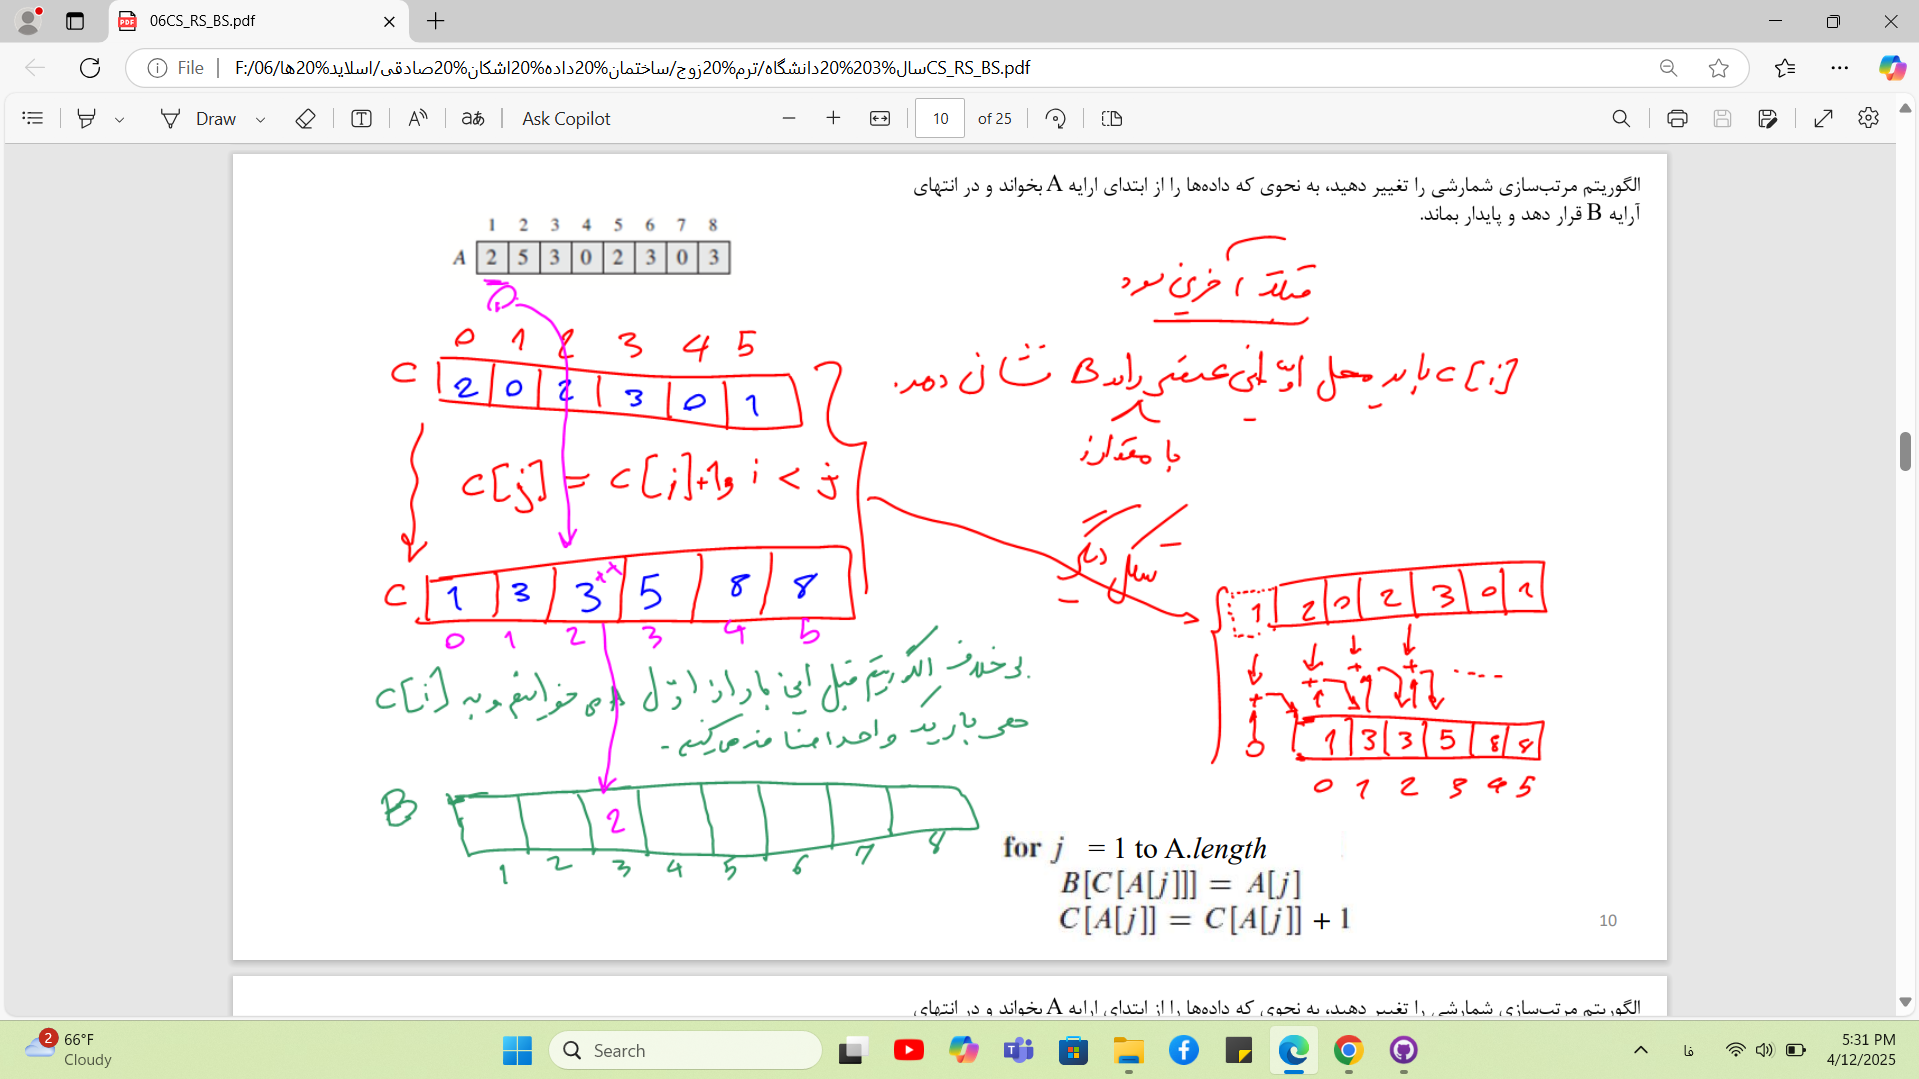 06CS_RS_BS.pdf
File
F:/06/سال%203%20دانشگاه/ترم%20زوج/ساختمان%20داده%20اشکان%20صادقی/اسلاید%20ها/CS_RS_BS.pdf
Draw
aあ
Ask Copilot
10
of 25
الگوریتم مرتب‌سازی شمارشی را تغییر دهید، به نحوی که داده‌ها را از ابتدای ارایه A بخواند و در انتهای
آرایه B قرار دهد و پایدار بماند.
1 2 3 4 5 6 7 8
A 2 5 3 0 2 3 0 3
قبلا آخرین بود
0 1 2 3 4 5
C 2 0 2 3 0 1
C[i] باید محل اولین عنصر را در B نشان دهد.
با مقدار i
C[j] = C[i]+1 و i < j
شکل دیگر
C 1 3 3++ 5 8 8
0 1 2 3 4 5
1 2 0 2 3 0 1
+ + + + ....
0
1 3 3 5 8 8
0 1 2 3 4 5
برخلاف الگوریتم قبل این بار از اول A می خوانیم و به C[i]
هی بار یک واحد اضافه می‌کنیم.
B 2
1 2 3 4 5 6 7 8
for j = 1 to A.length
B[C[A[j]]] = A[j]
C[A[j]] = C[A[j]] + 1
10
الگوریتم مرتب‌سازی شمارشی را تغییر دهید، به نحوی که داده‌ها را از ابتدای ارایه A بخواند و در انتهای
2
66°F
Cloudy
Search
فا
5:31 PM
4/12/2025